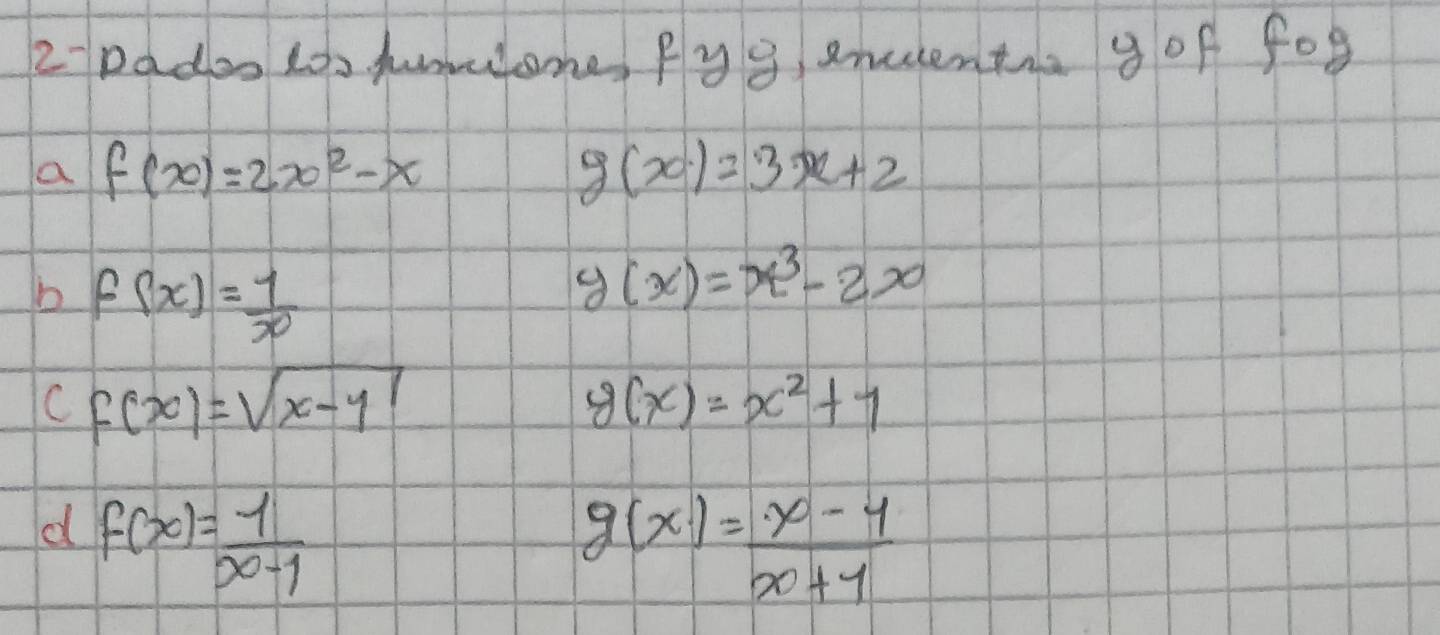 2- Dadas las funciones f y g, encuentra gof fog
a f(x)=2x²-x g(x)=3x+2
b f(x)=1/x g(x)=x³-2x
c f(x)=√x-1 g(x)=x²+1
d f(x)=1/x-1 g(x)=x-1/x+1